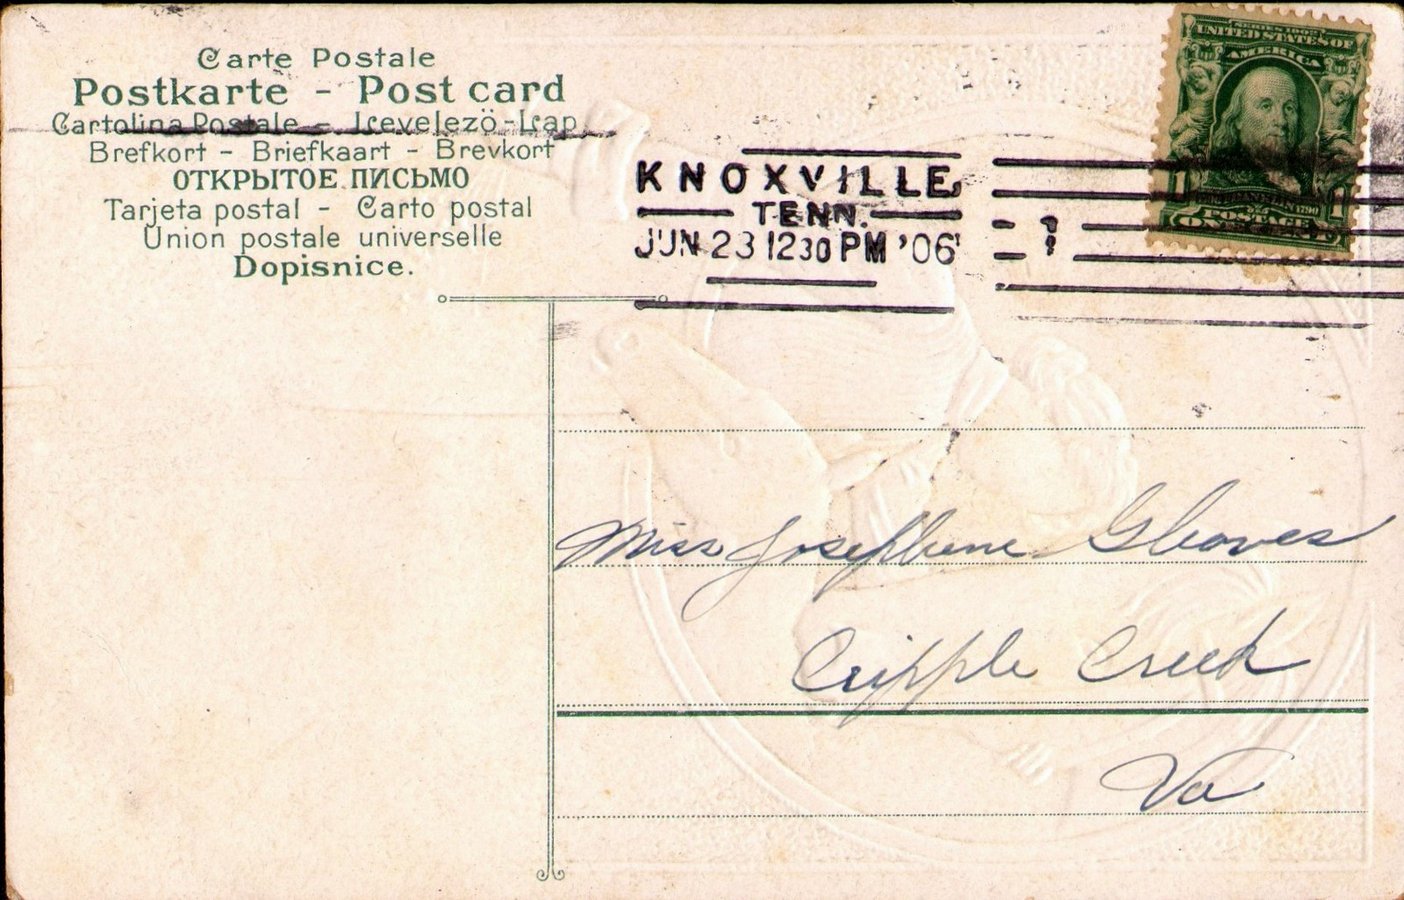 Carte Postale
Postkarte - Post card
Cartolina Postale - Levelezö-Lap
Brefkort - Briefkaart - Brevkort
ОТКРЫТОЕ ПИСЬМО
Tarjeta postal - Carto postal
Union postale universelle
Dopisnice.
SERIES 1902
UNITED STATES OF
AMERICA
1 1
POSTAGE
ONE
KNOXVILLE
TENN.
JUN 23 1230 PM '06
Miss Josephene Gleaves
Cripple Creek
Va